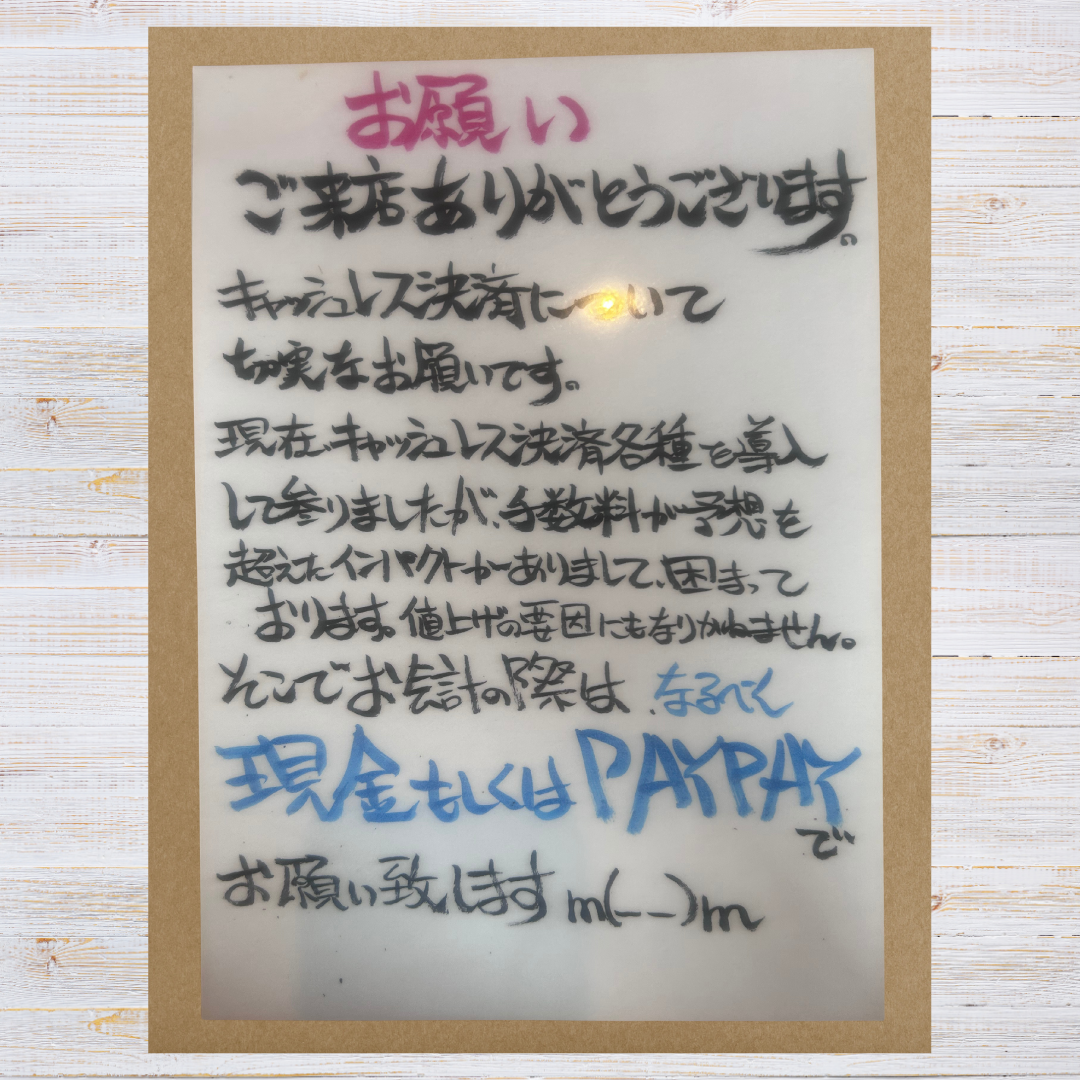 お願い
ご来店ありがとうございます。
キャッシュレス決済について
切実なお願いです。
現在、キャッシュレス決済各種を導入
して参りましたが、手数料が予想を
超えたインパクトがありまして、困まって
おります。値上げの要因にもなりかねません。
そこでお会計の際は、なるべく
現金もしくはPAYPAY
で
お願い致します m(__)m